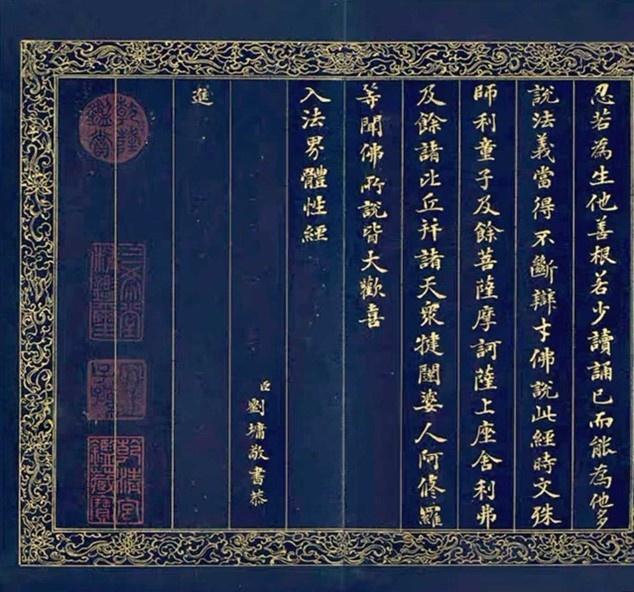 忍若為生他善根若少讀誦已而能為他多
說法義當得不斷辯才佛說此經時文殊
師利童子及餘菩薩摩訶薩上座舍利弗
及餘諸比丘幷諸天衆犍闥婆人阿修羅
等聞佛所說皆大歡喜
入法界體性經
臣劉墉敬書恭
進
乾隆鑑賞
三希堂精鑑璽
宜子孫
乾清宮鑑藏寶